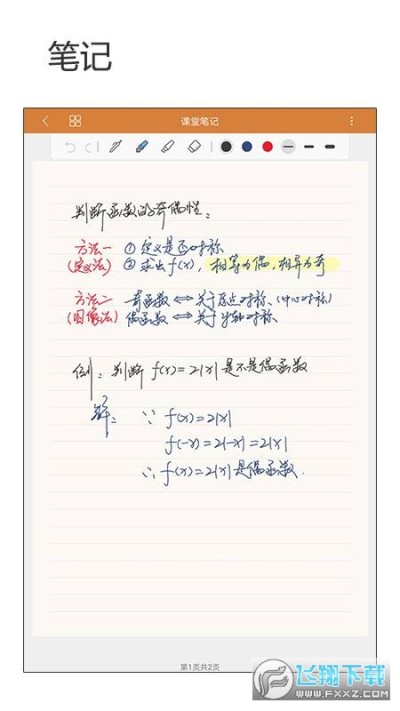 笔记
课堂笔记
判断函数的奇偶性：
方法一 ① 定义是否对称
(定义法) ② 求出f(x)，相等为偶，相异为奇
方法二 奇函数 ⟺ 关于原点对称、(中心对称)
(图像法) 偶函数 ⟺ 关于y轴对称、
例：判断 f(x)=2|x| 是不是偶函数
解： ∵ f(x)=2|x|
f(-x)=2|-x|=2|x|
∴ f(x)=2|x| 是偶函数.
第1页共2页
飞翔下载
WWW.FXXZ.COM